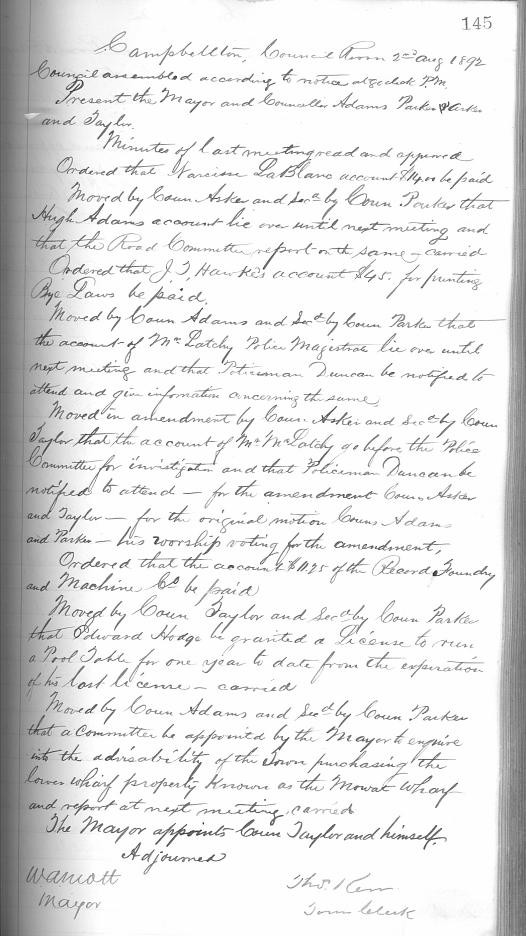 145
Campbellton, Council Room 2nd Aug 1892
Council assembled according to notice at 8 oclock P.M.
Present the Mayor and Councillors Adams Parker Asker
and Taylor.
Minutes of last meeting read and approved
Ordered that Narcisse LaBlanc account $14.00 be paid
Moved by Coun Asker and Secd by Coun Parker that
Hugh Adams account lie over until next meeting and
that the Road Committee report on the same - carried
Ordered that J. T. Hawke's account $45. for printing
Bye Laws be paid.
Moved by Coun Adams and Secd by Coun Parker that
the account of Mc Latchy Police Magistrate lie over until
next meeting and that Policeman Duncan be notified to
attend and give information concerning the same
Moved in amendment by Coun Asker and Secd by Coun
Taylor that the account of Mr McLatchy go before the Police
Committee for investigation and that Policeman Duncan be
notified to attend - for the amendment Coun Asker
and Taylor - for the original motion Couns Adams
and Parker - his worship voting for the amendment,
Ordered that the account $11.75 of the Record Foundry
and Machine Co be paid
Moved by Coun Taylor and Secd by Coun Parker
that Edward Hodge be granted a License to run
a Pool Table for one year to date from the expiration
of his last license - carried
Moved by Coun Adams and Secd by Coun Parker
that a Committee be appointed by the Mayor to enquire
into the advisability of the Town purchasing the
lower wharf property known as the Mowat wharf
and report at next meeting, carried
The Mayor appoints Coun Taylor and himself.
Adjourned
W A Mott
Mayor
Thos. Kerr
Town Clerk